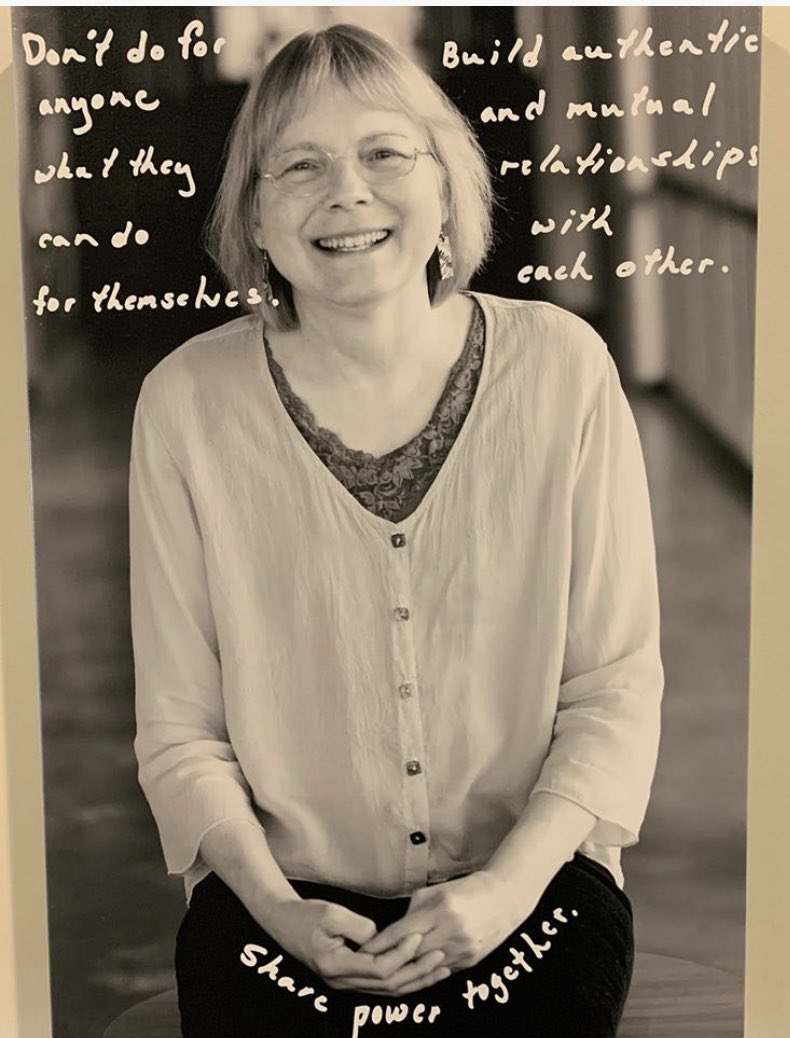 Don't do for
anyone
what they
can do
for themselves.
Build authentic
and mutual
relationships
with
each other.
Share power together.